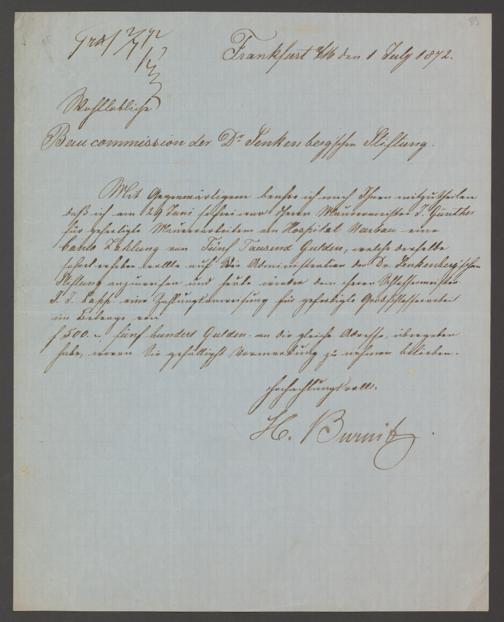 89
Frankfurt a/M den 1 July 1872.
Wohllöbliche
Baucommission der Dr. Senkenbergischen Stiftung.
Mit Gegenwärtigem beehre ich mich Ihnen mitzutheilen
daß ich am 29 Juni dem Herrn Maurermeister J. Günther
für gefertigte Maurerarbeiten am Hospital Neubau eine
Zahlung von Fünf Tausend Gulden, welche derselbe
auf die Administration der Dr. Senkenbergischen
Stiftung angewiesen und heute wieder dem Herrn Schlossermeister
J. J. eine Zahlungsanweisung für gefertigte Schlosserarbeiten
im Betrage von
f 500.– fünf hundert Gulden an die gleiche Adresse, übergeben
habe, wovon Sie gefälligst Vormerkung zu nehmen belieben.
Hochachtungsvoll.
H. Burnitz.